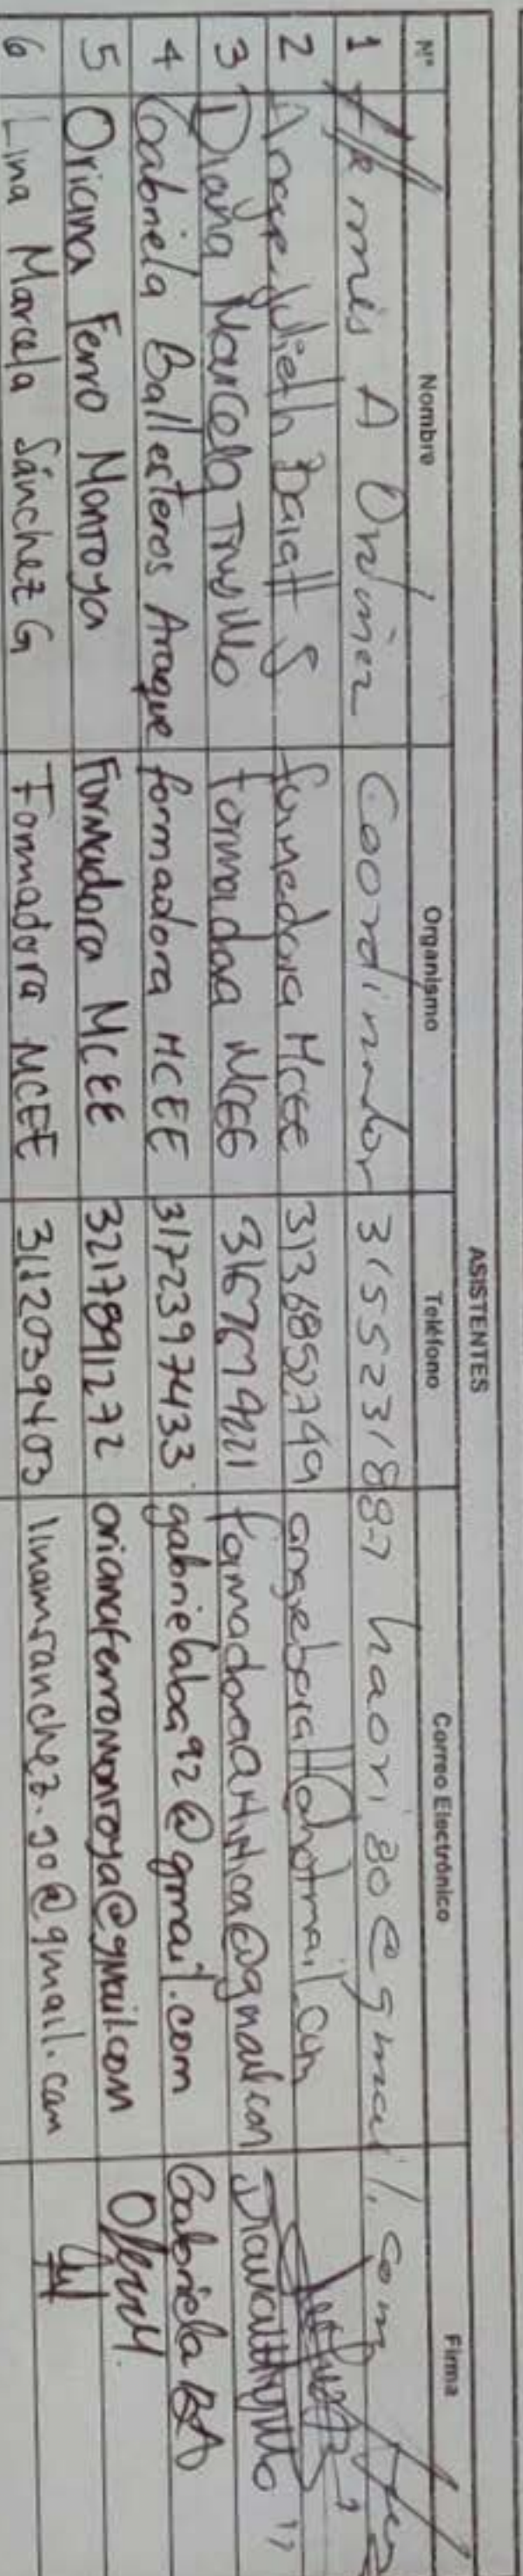 ASISTENTES
N° Nombre Organismo Teléfono Correo Electrónico Firma
1 Hermes A Ordoñez Coordinador 3155231887 haori80@gmail.com
2 Angie Julieth Baiatt S formadora MCEE 3136852749 angiebaiatt@hotmail.com
3 Diana Marcela Trujillo formadora MCEE formadoraartistica@gmail.com
4 Gabriela Ballesteros Araque formadora MCEE 3172397433 gabrielaba92@gmail.com Gabriela BA
5 Oriana Ferro Monroya Formadora MCEE 3217891272 orianaferromonroya@gmail.com
6 Lina Marcela Sánchez G Formadora MCEE 3112039403 linamsanchez.go@gmail.com